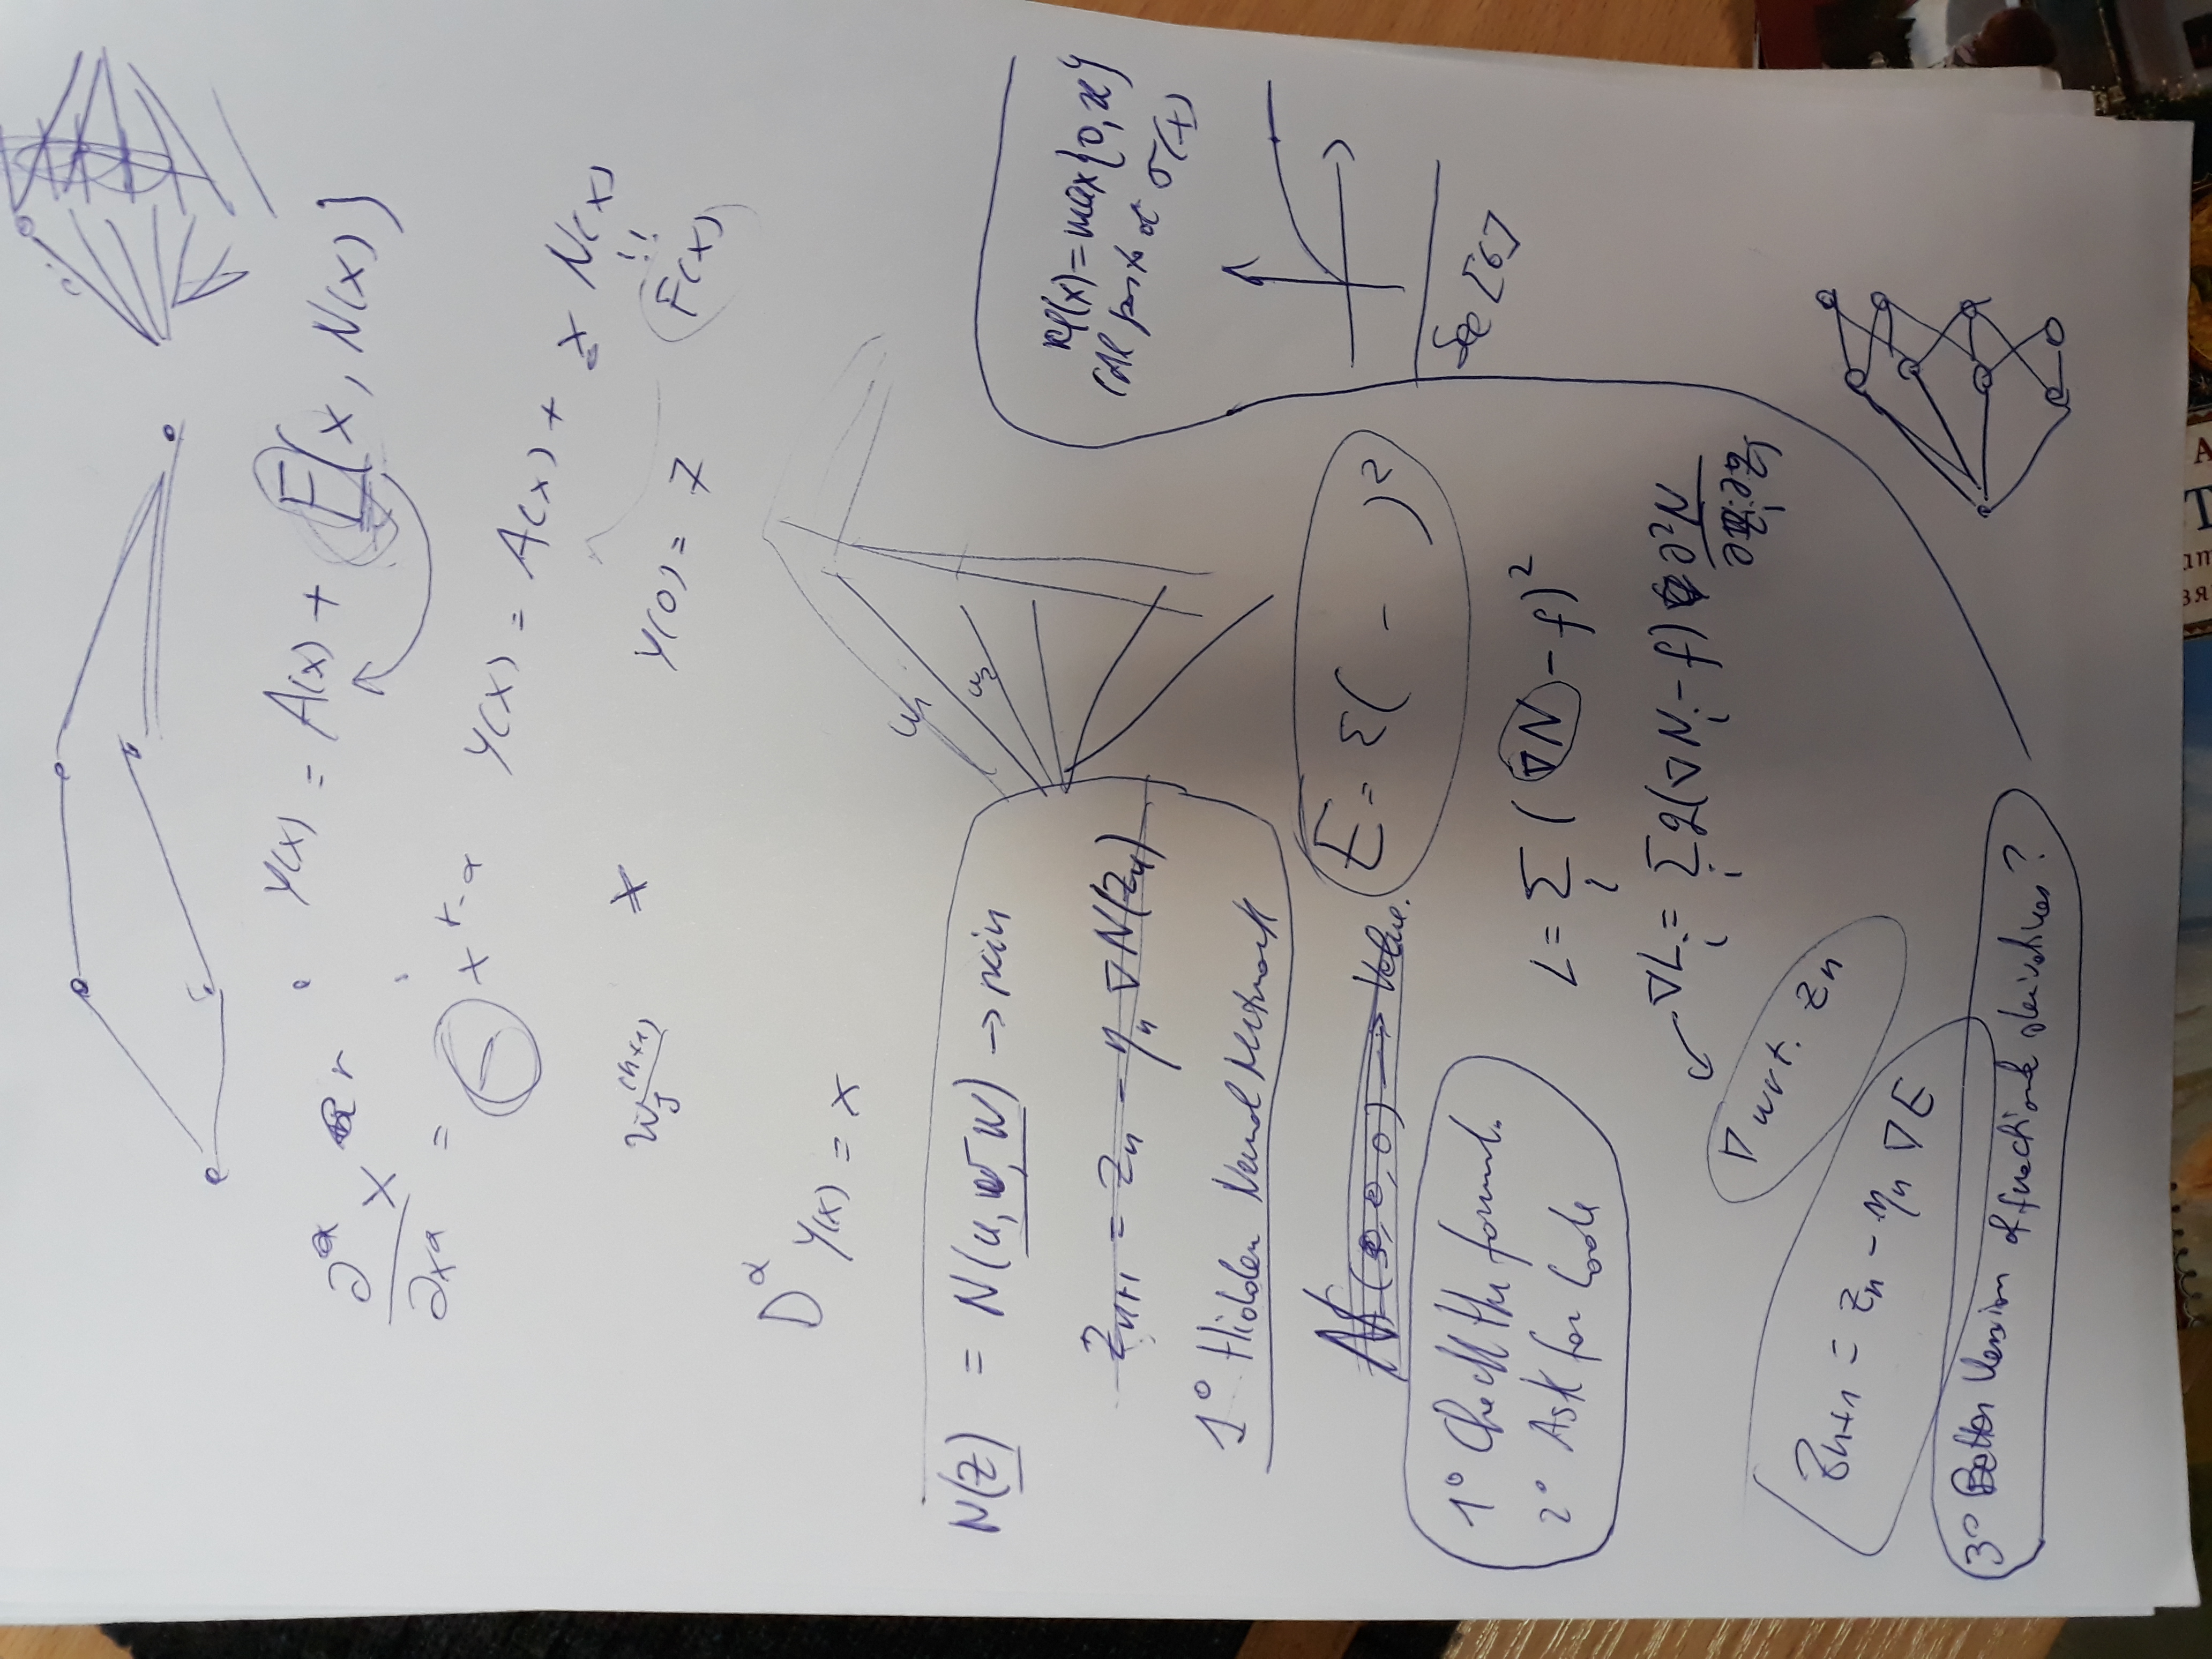 Y(x) = A(x) + F(x, N(x))
∂^α/∂x^α x^r
= x^{r-α}
Y(x) = A(x) + x N(x)
!!
w_j^{(n+1)} x
Y(0) = 7 F(x)
D^α Y(x) = x
w_1
w_2
N(z) = N(u, v, w) → min
z_{n+1} = z_n - η_n ∇N(z_n)
1° Hidden Neural Network
φ(x) = max{0, x}
σ(x)
N(0,0,0) → Value.
E = Σ( - )²
See [6]
1° Check the formul.
2° Ask for Code
L = Σ_i (∇N - f)²
∇L_i = Σ_i 2(∇N_i - f) ∂²N
∇ wrt. z_n
z_{n+1} = z_n - η_n ∇E
3° Better Version of fractional derivatives?